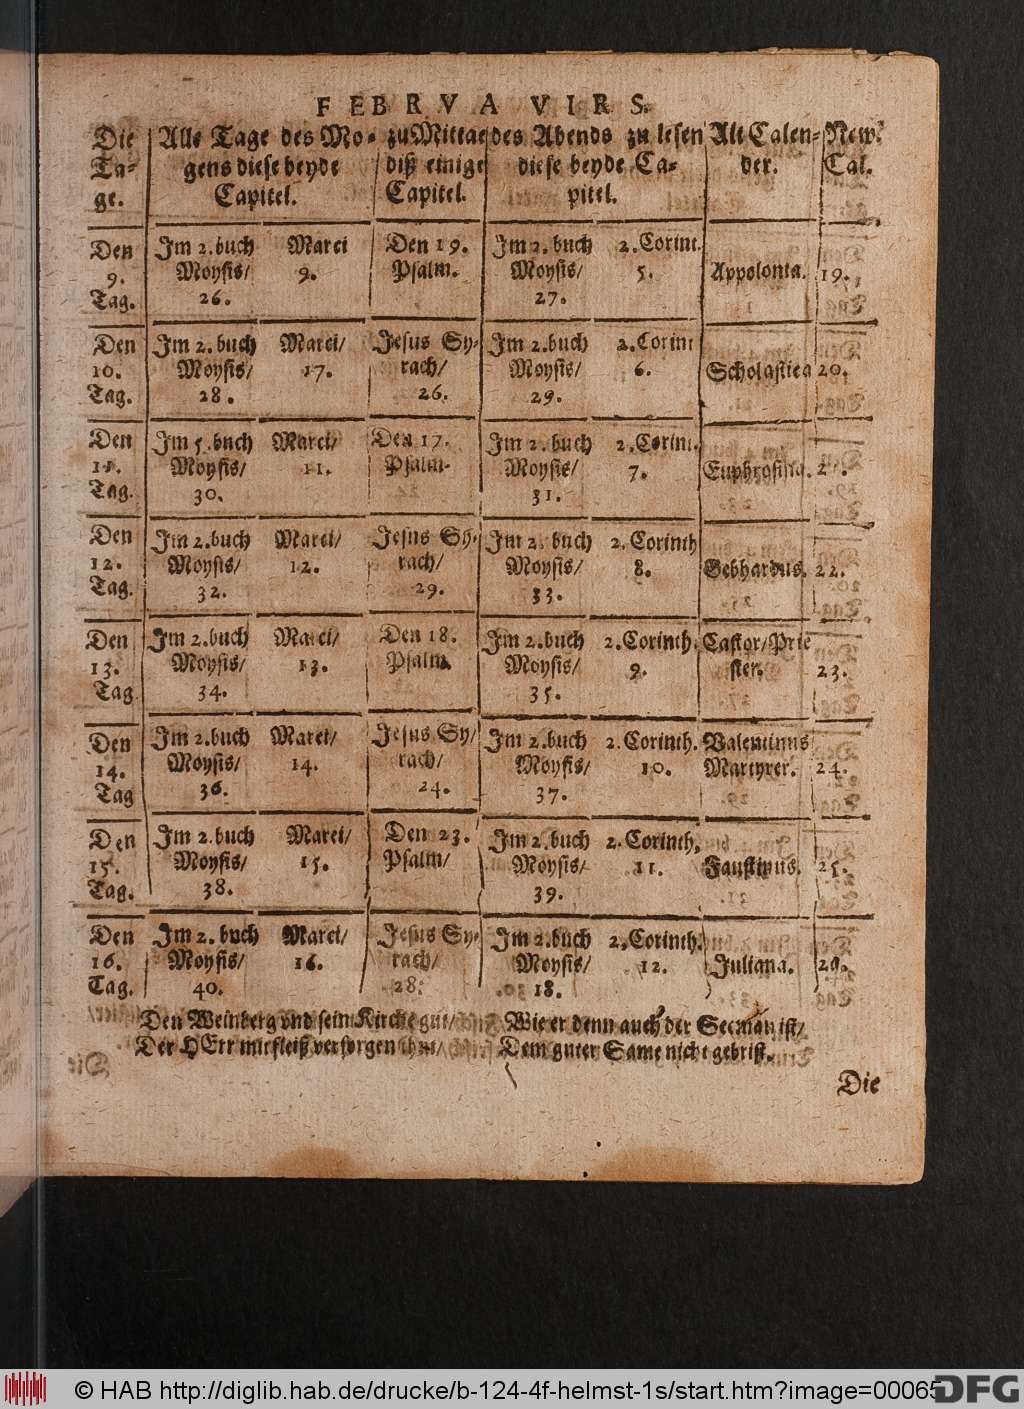 FEBRVA VIRS.
Die Alle Tage des Mo- zu Mittae des Abends zu lesen Alt Calen- New.
Ta- gens diese beyde diß einige diese beyde Ca- der. Cal.
ge. Capitel. Capitel. pitel.
Den Im 2. buch Marci Den 19. Im 2. buch 2. Corint.
9. Moysis/ 9. Psalm. Moysis/ 5. Appolonia. 19.
Tag. 26. 27.
Den Im 2. buch Marci/ Jesus Sy- Im 2. buch 2. Corint
10. Moysis/ 17. rach/ Moysis/ 6. Scholastica 20.
Tag. 28. 26. 29.
Den Im 5. buch Marci/ Den 17. Im 2. buch 2. Corint.
11. Moysis/ 11. Psalm. Moysis/ 7. Euphrosina.
Tag. 30. 31.
Den Im 2. buch Marci/ Jesus Sy- Im 2. buch 2. Corinth
12. Moysis/ 12. rach/ Moysis/ 8. Gebhardus. 22.
Tag. 32. 29. 33.
Den Im 2. buch Marci/ Den 18. Im 2. buch 2. Corinth. Castor/Prie
13. Moysis/ 13. Psalm. Moysis/ 9. ster. 23.
Tag 34. 35.
Den Im 2. buch Marci/ Jesus Sy/ Im 2. buch 2. Corinth. Valentinus
14. Moysis/ 14. rach/ Moysis/ 10. Martyrer. 24.
Tag 36. 24. 37.
Den Im 2. buch Marci/ Den 23. Im 2. buch 2. Corinth,
15. Moysis/ 15. Psalm/ Moysis/ 11. Faustinus. 25.
Tag. 38. 39.
Den Im 2. buch Marci/ Jesus Sy- Im 2. buch 2. Corinth.
16. Moysis/ 16. rach/ Moysis/ 12. Juliana. 29.
Tag. 40. 28. 18.
Den Weinberg vnd sein Kirche gut/ Wie er denn auch der Seeman ist/
Der HErr mit fleiß versorgen thut/ Dem guter Same nicht gebrist.
Die
© HAB http://diglib.hab.de/drucke/b-124-4f-helmst-1s/start.htm?image=00065
DFG